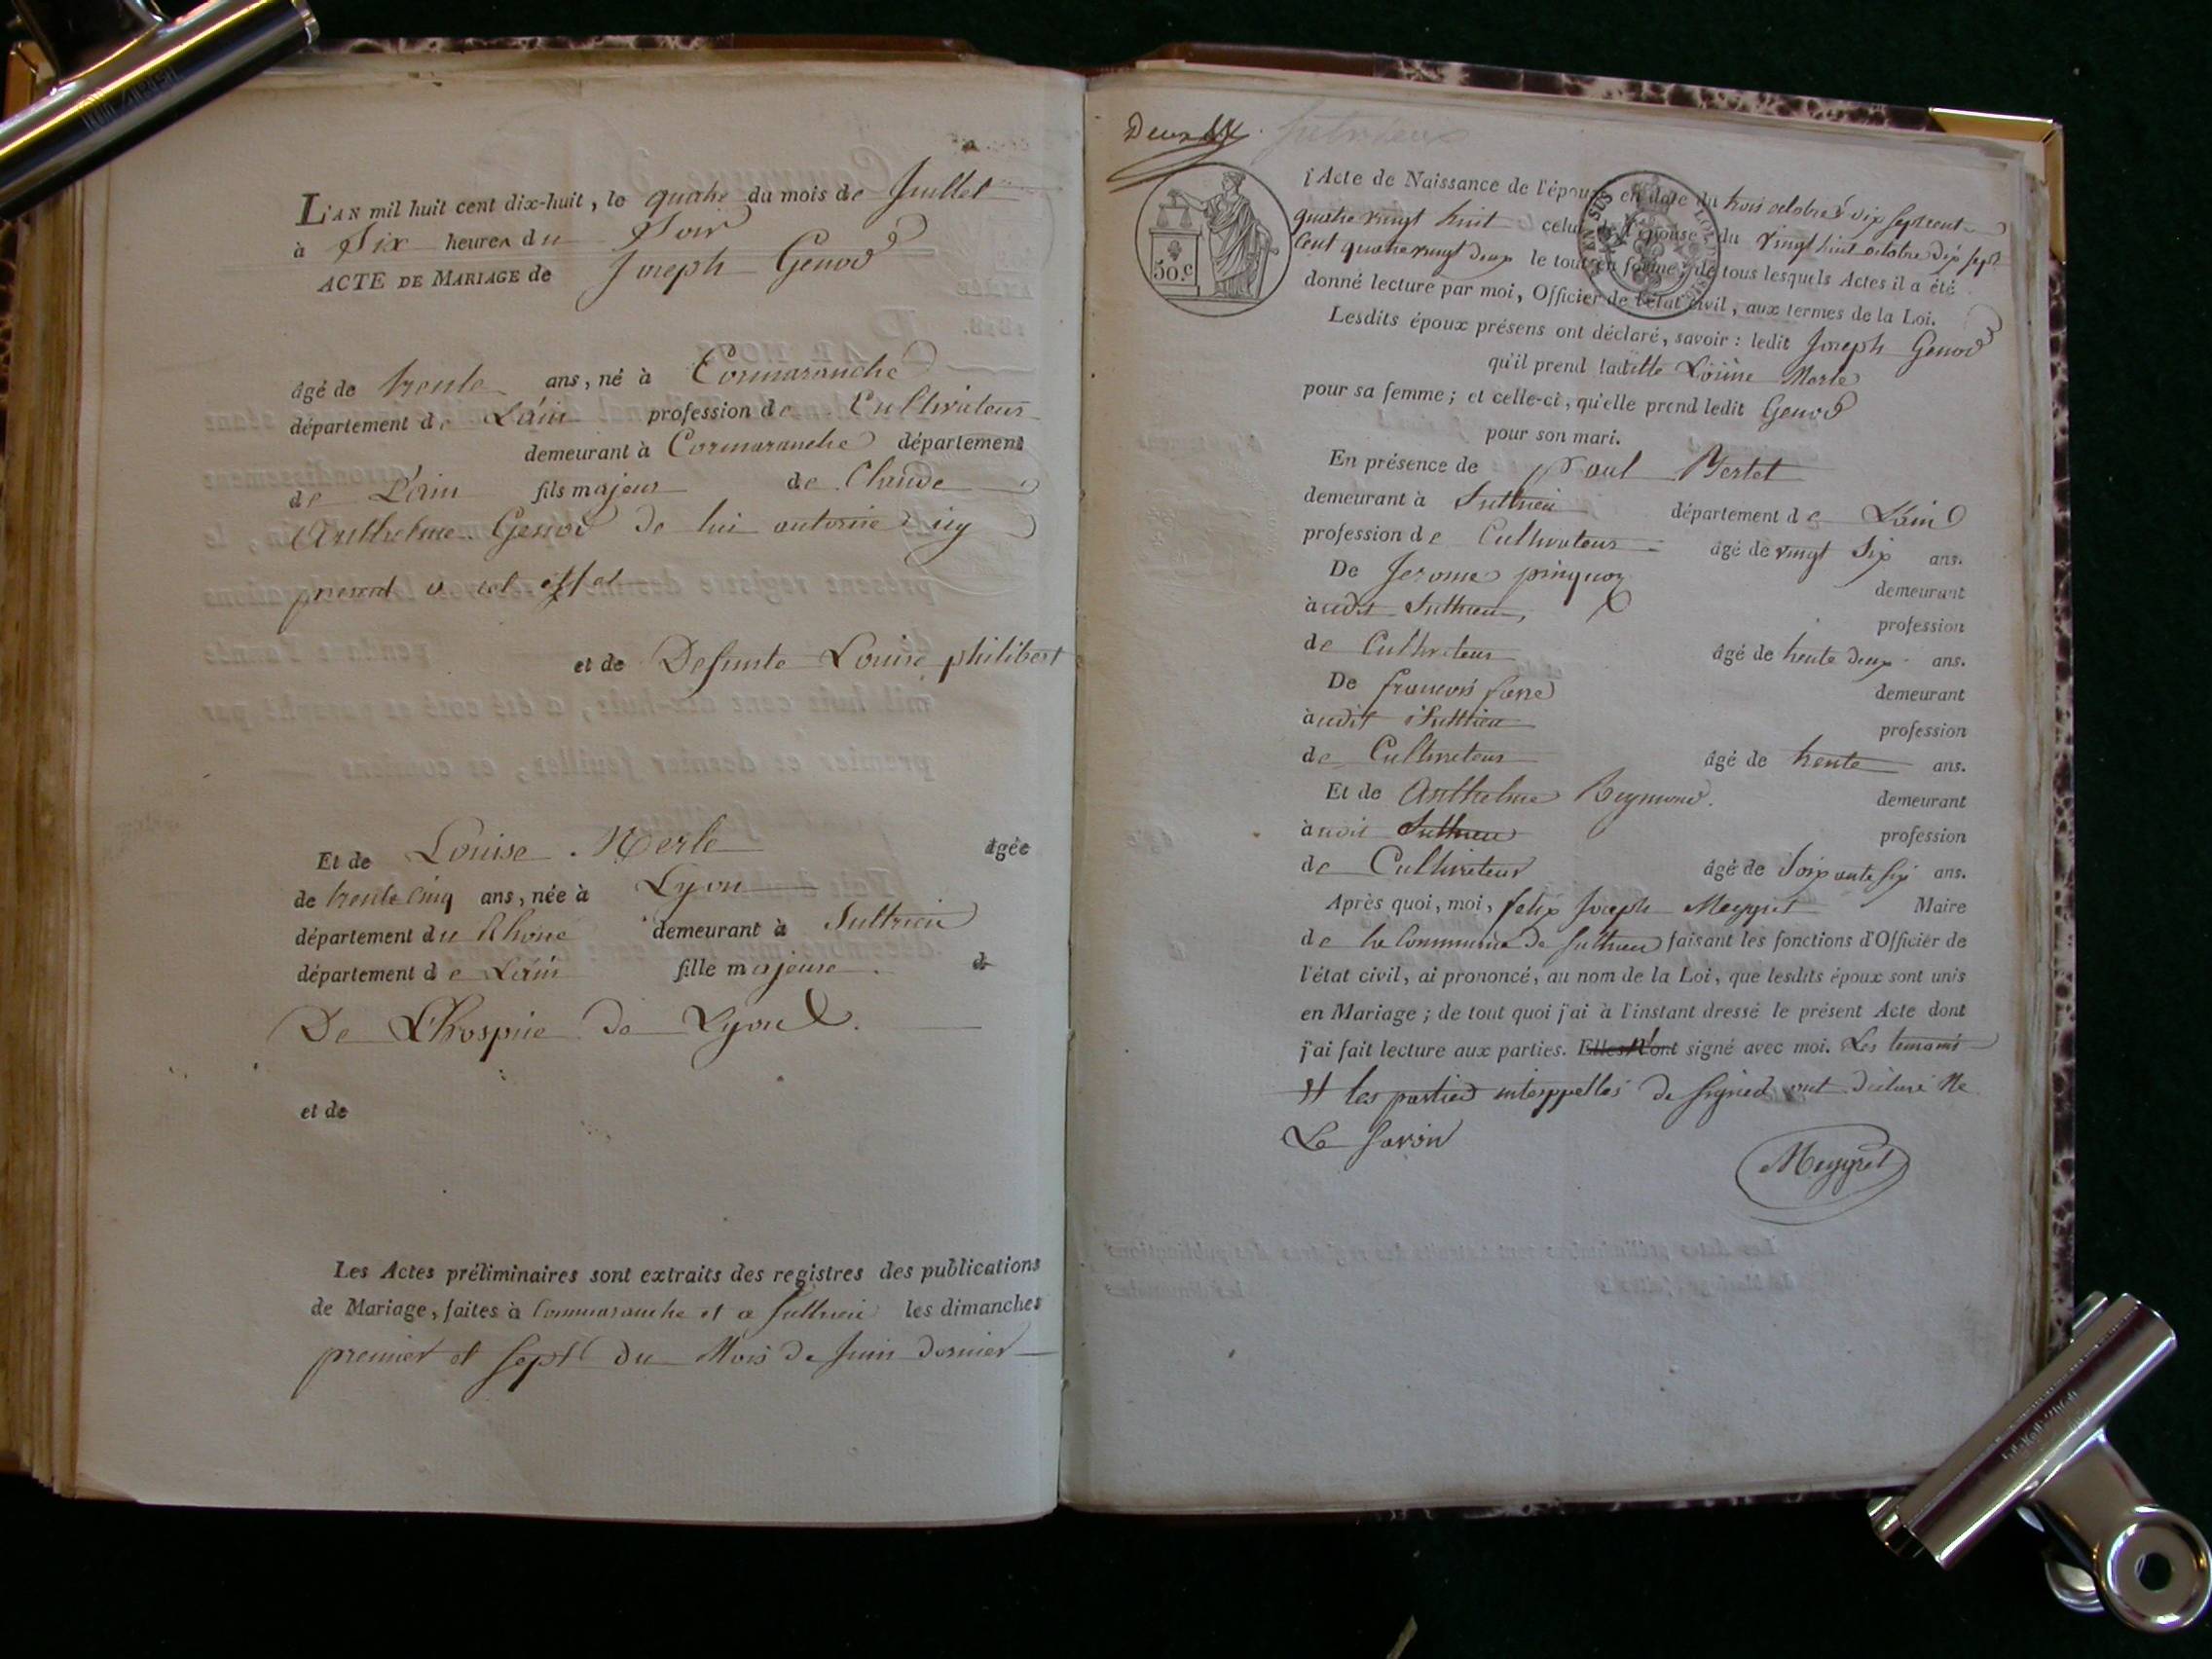 L'AN mil huit cent dix-huit, le quatre du mois de Juillet
à Six heures du Soir
ACTE DE MARIAGE de Joseph Genod
âgé de trente ans, né à Cormaranche
département de L'ain profession de Cultivateur
demeurant à Cormaranche département
de L'ain fils majeur de Claude
Anthelme Genod de lui autorisé icy
present a cet effet
et de Defunte Louise philibert
Et de Louise Merle agée
de trente cinq ans, née à Lyon
département du Rhone demeurant à Sutrieu
département de L'ain fille majeure d
De L'hospice de Lyon
et de
Les Actes préliminaires sont extraits des registres des publications
de Mariage, faites à Cormaranche et a Suthrieu les dimanches
premier et sept du Mois de Juin dernier
Deux
50.c
l'Acte de Naissance de l'époux en date du trois octobre dix sept cent
quatre vingt huit celui de l'épouse du vingt huit octobre dix sept
Cent quatre vingt deux le tout en forme; de tous lesquels Actes il a été
donné lecture par moi, Officier de l'état civil, aux termes de la Loi.
Lesdits époux présens ont déclaré, savoir: ledit Joseph Genod
qu'il prend ladite Louise Merle
pour sa femme; et celle-ci, qu'elle prend ledit Genod
pour son mari.
En présence de paul Bertet
demeurant à Suthrieu département de L'ain
profession de Cultivateur âgé de vingt Six ans.
De Jerome pinquoz demeurant
audit Suthrieu, profession
de Cultivateur âgé de trente deux ans.
De francois demeurant
audit Suthrieu profession
de Cultivateur âgé de trente ans.
Et de Anthelme Reymond. demeurant
audit Suthrieu profession
de Cultivateur âgé de Soixante six ans.
Après quoi, moi, felix Joseph Meygret Maire
de la Commune de Suthrieu faisant les fonctions d'Officier de
l'état civil, ai prononcé, au nom de la Loi, que lesdits époux sont unis
en Mariage; de tout quoi j'ai à l'instant dressé le présent Acte dont
j'ai fait lecture aux parties. Elles n'ont signé avec moi. Les temoins
Et les parties interppellés de Signer ont déclaré Ne
Le Savoir
Meygret